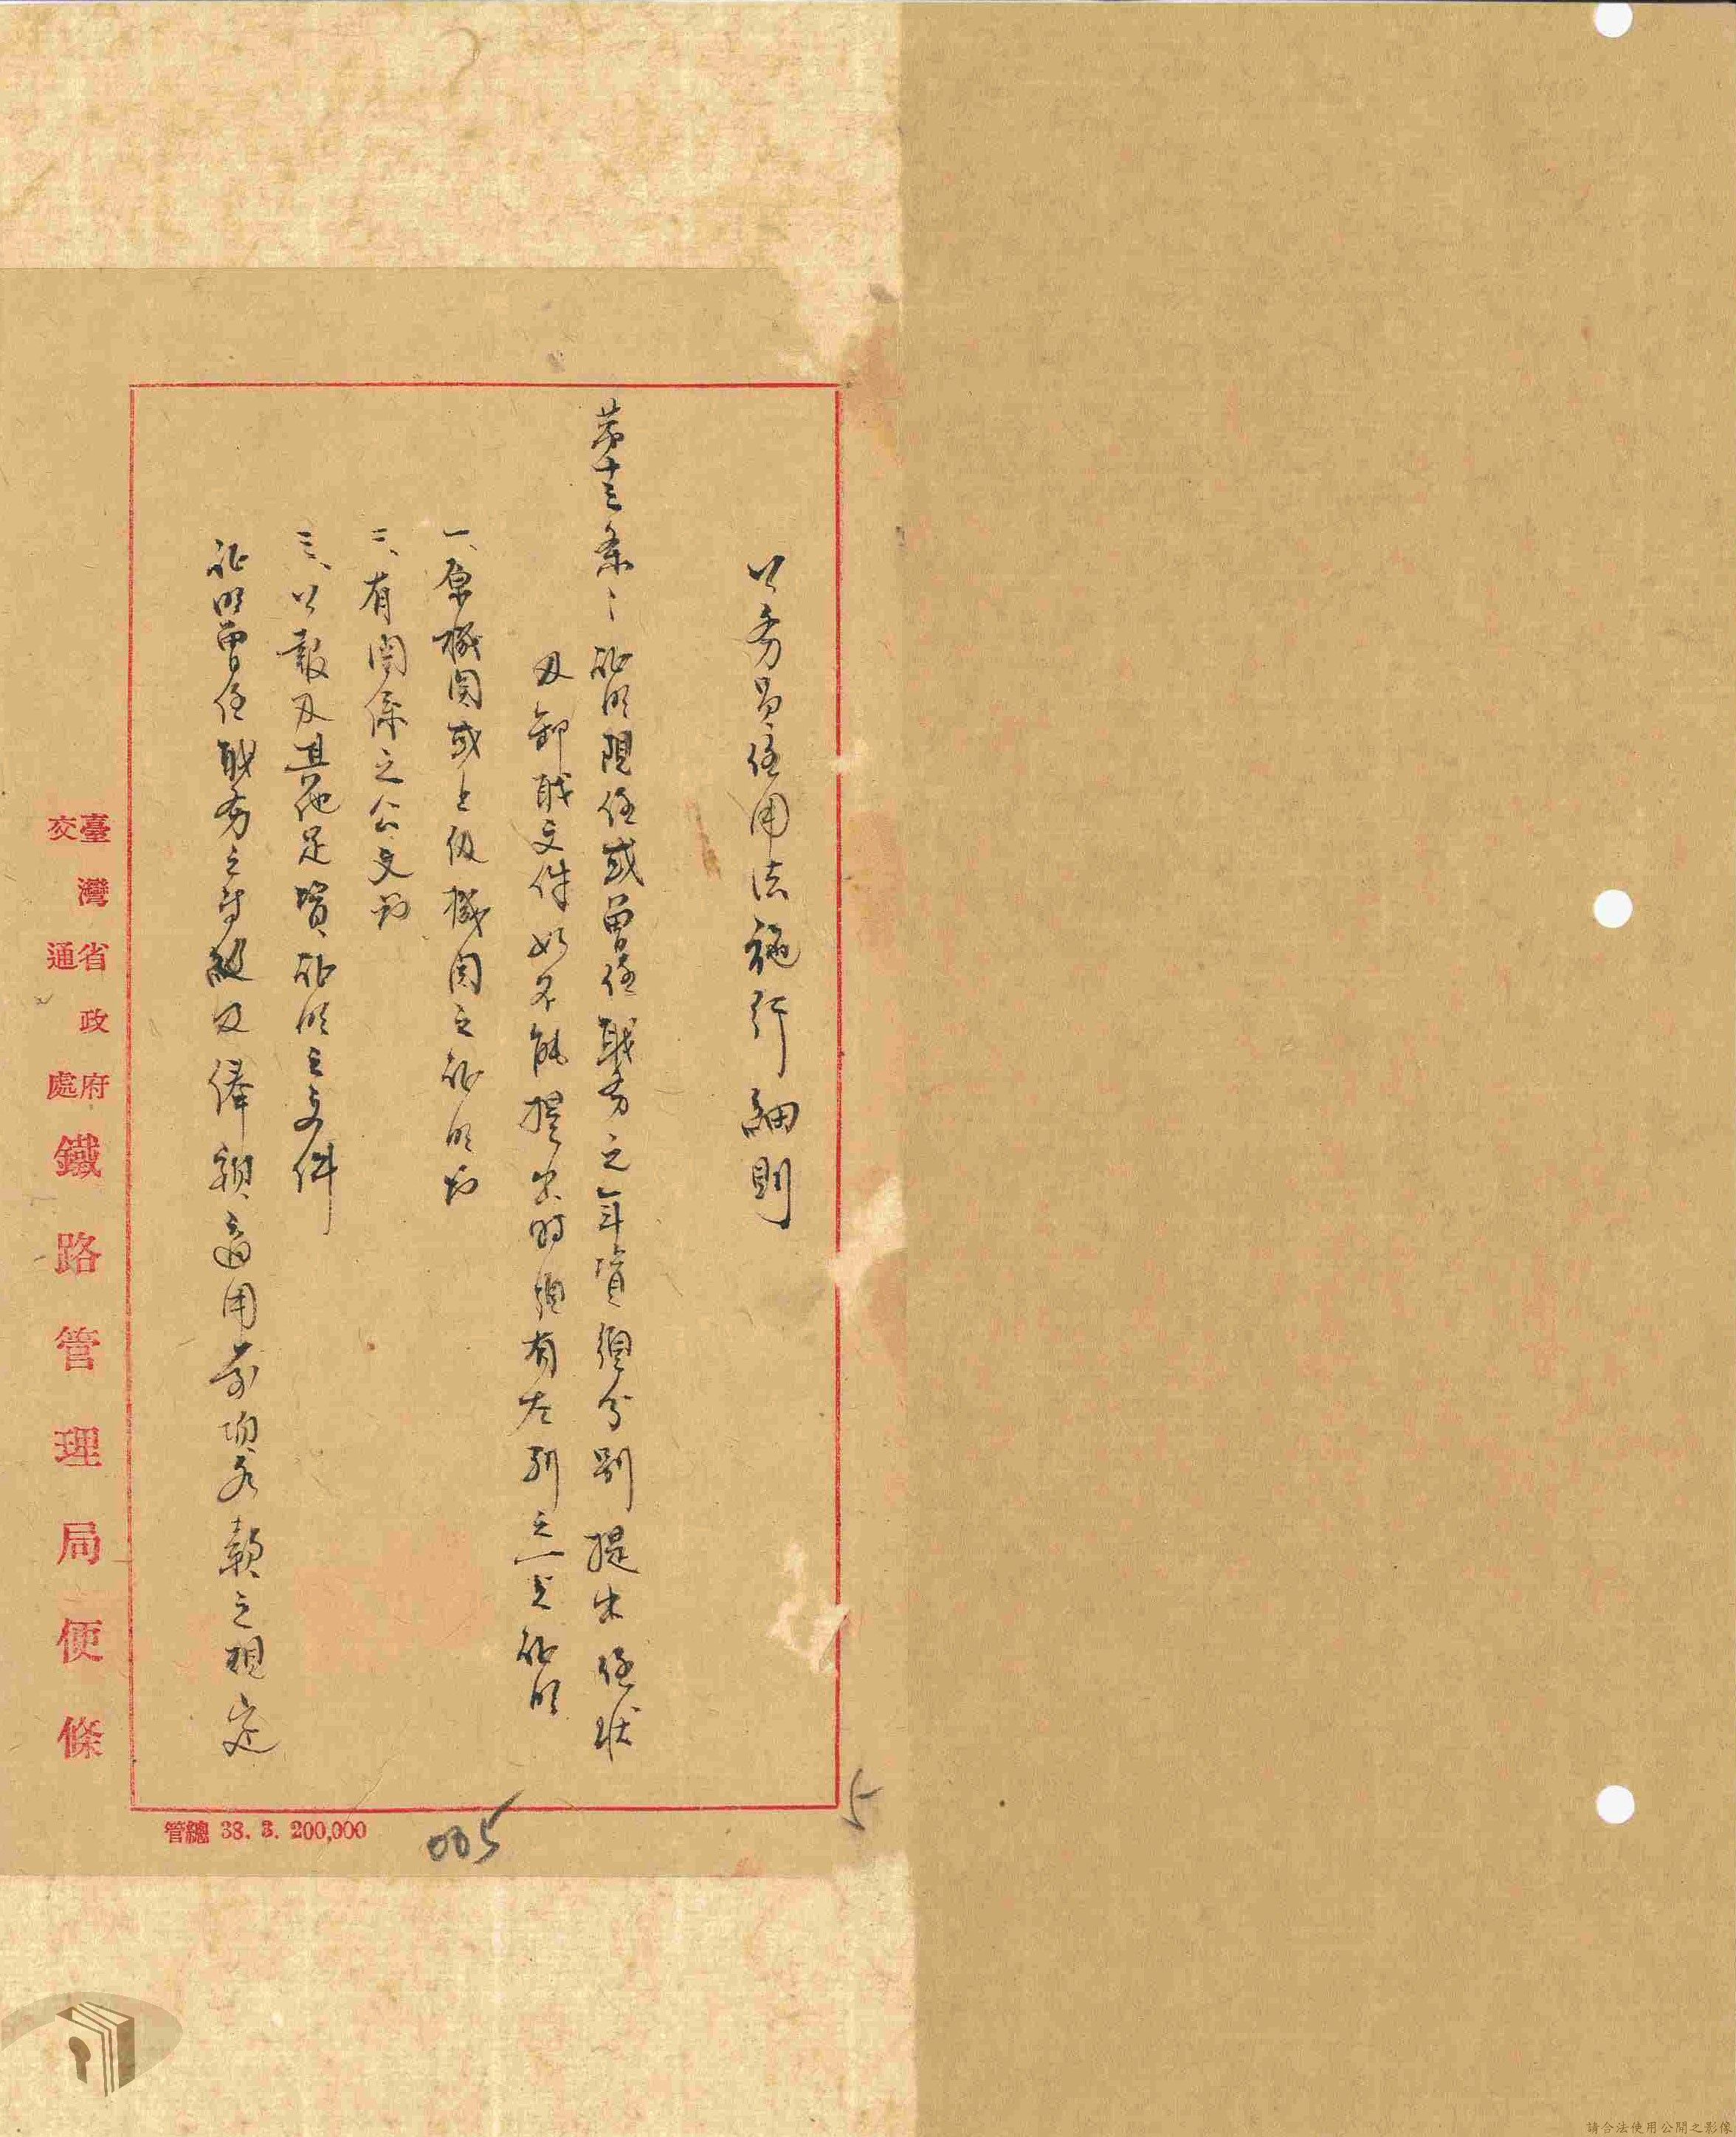 公務員任用法施行細則
第十三条：証明現任或曾任職务之年資須分别提出任状
及卸職文件如不能提出时須有左列之一之証明
一、原機関或上级機関之証明
二、有関係之公文
三、公報及其他足資証明之文件
証明曾任職务之等級及俸額適用前項各款之規定
臺灣省政府
交通處
鐵路管理局便條
管總 38. 3. 200,000
005
5
請合法使用公開之影像